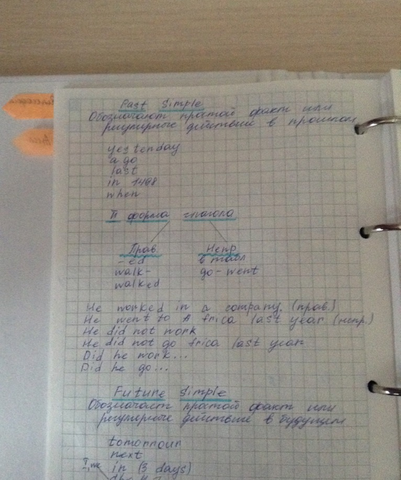 Past Simple
Обозначает простой факт или
регулярные действия в прошлом
yesterday
ago
last
in 1498
when
II форма глагола
Прав
Непр
-ed
в табл
walk-
go-went
walked
He worked in a company. (прав.)
He went to Africa last year (непр)
He did not work
He did not go frica last year
Did he work...
Did he go...
Future Simple
Обозначает простой факт или
регулярные действия в будущем
tomorrow
next
in (3 days)